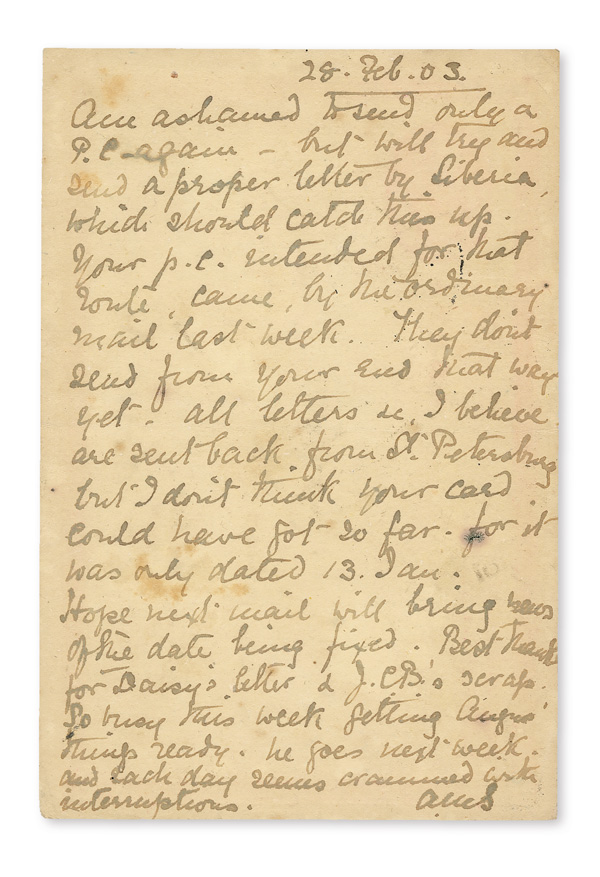 28. Feb. 03.
Am ashamed to send only a
P.C. again - but will try and
send a proper letter by Siberia,
which should catch this up.
Your p.c. intended for that
route, came, by the ordinary
mail last week. They don't
send from your end that way
yet - all letters I believe
are sent back from St. Petersburg
but I don't think your card
could have got so far. for it
was only dated 13. Jan.
Hope next mail will bring news
of the date being fixed. Best thanks
for Daisy's letter & J.C.B.'s scrap.
So busy this week getting Angus'
things ready. he goes next week.
and each day seems crammed with
interruptions. AMS